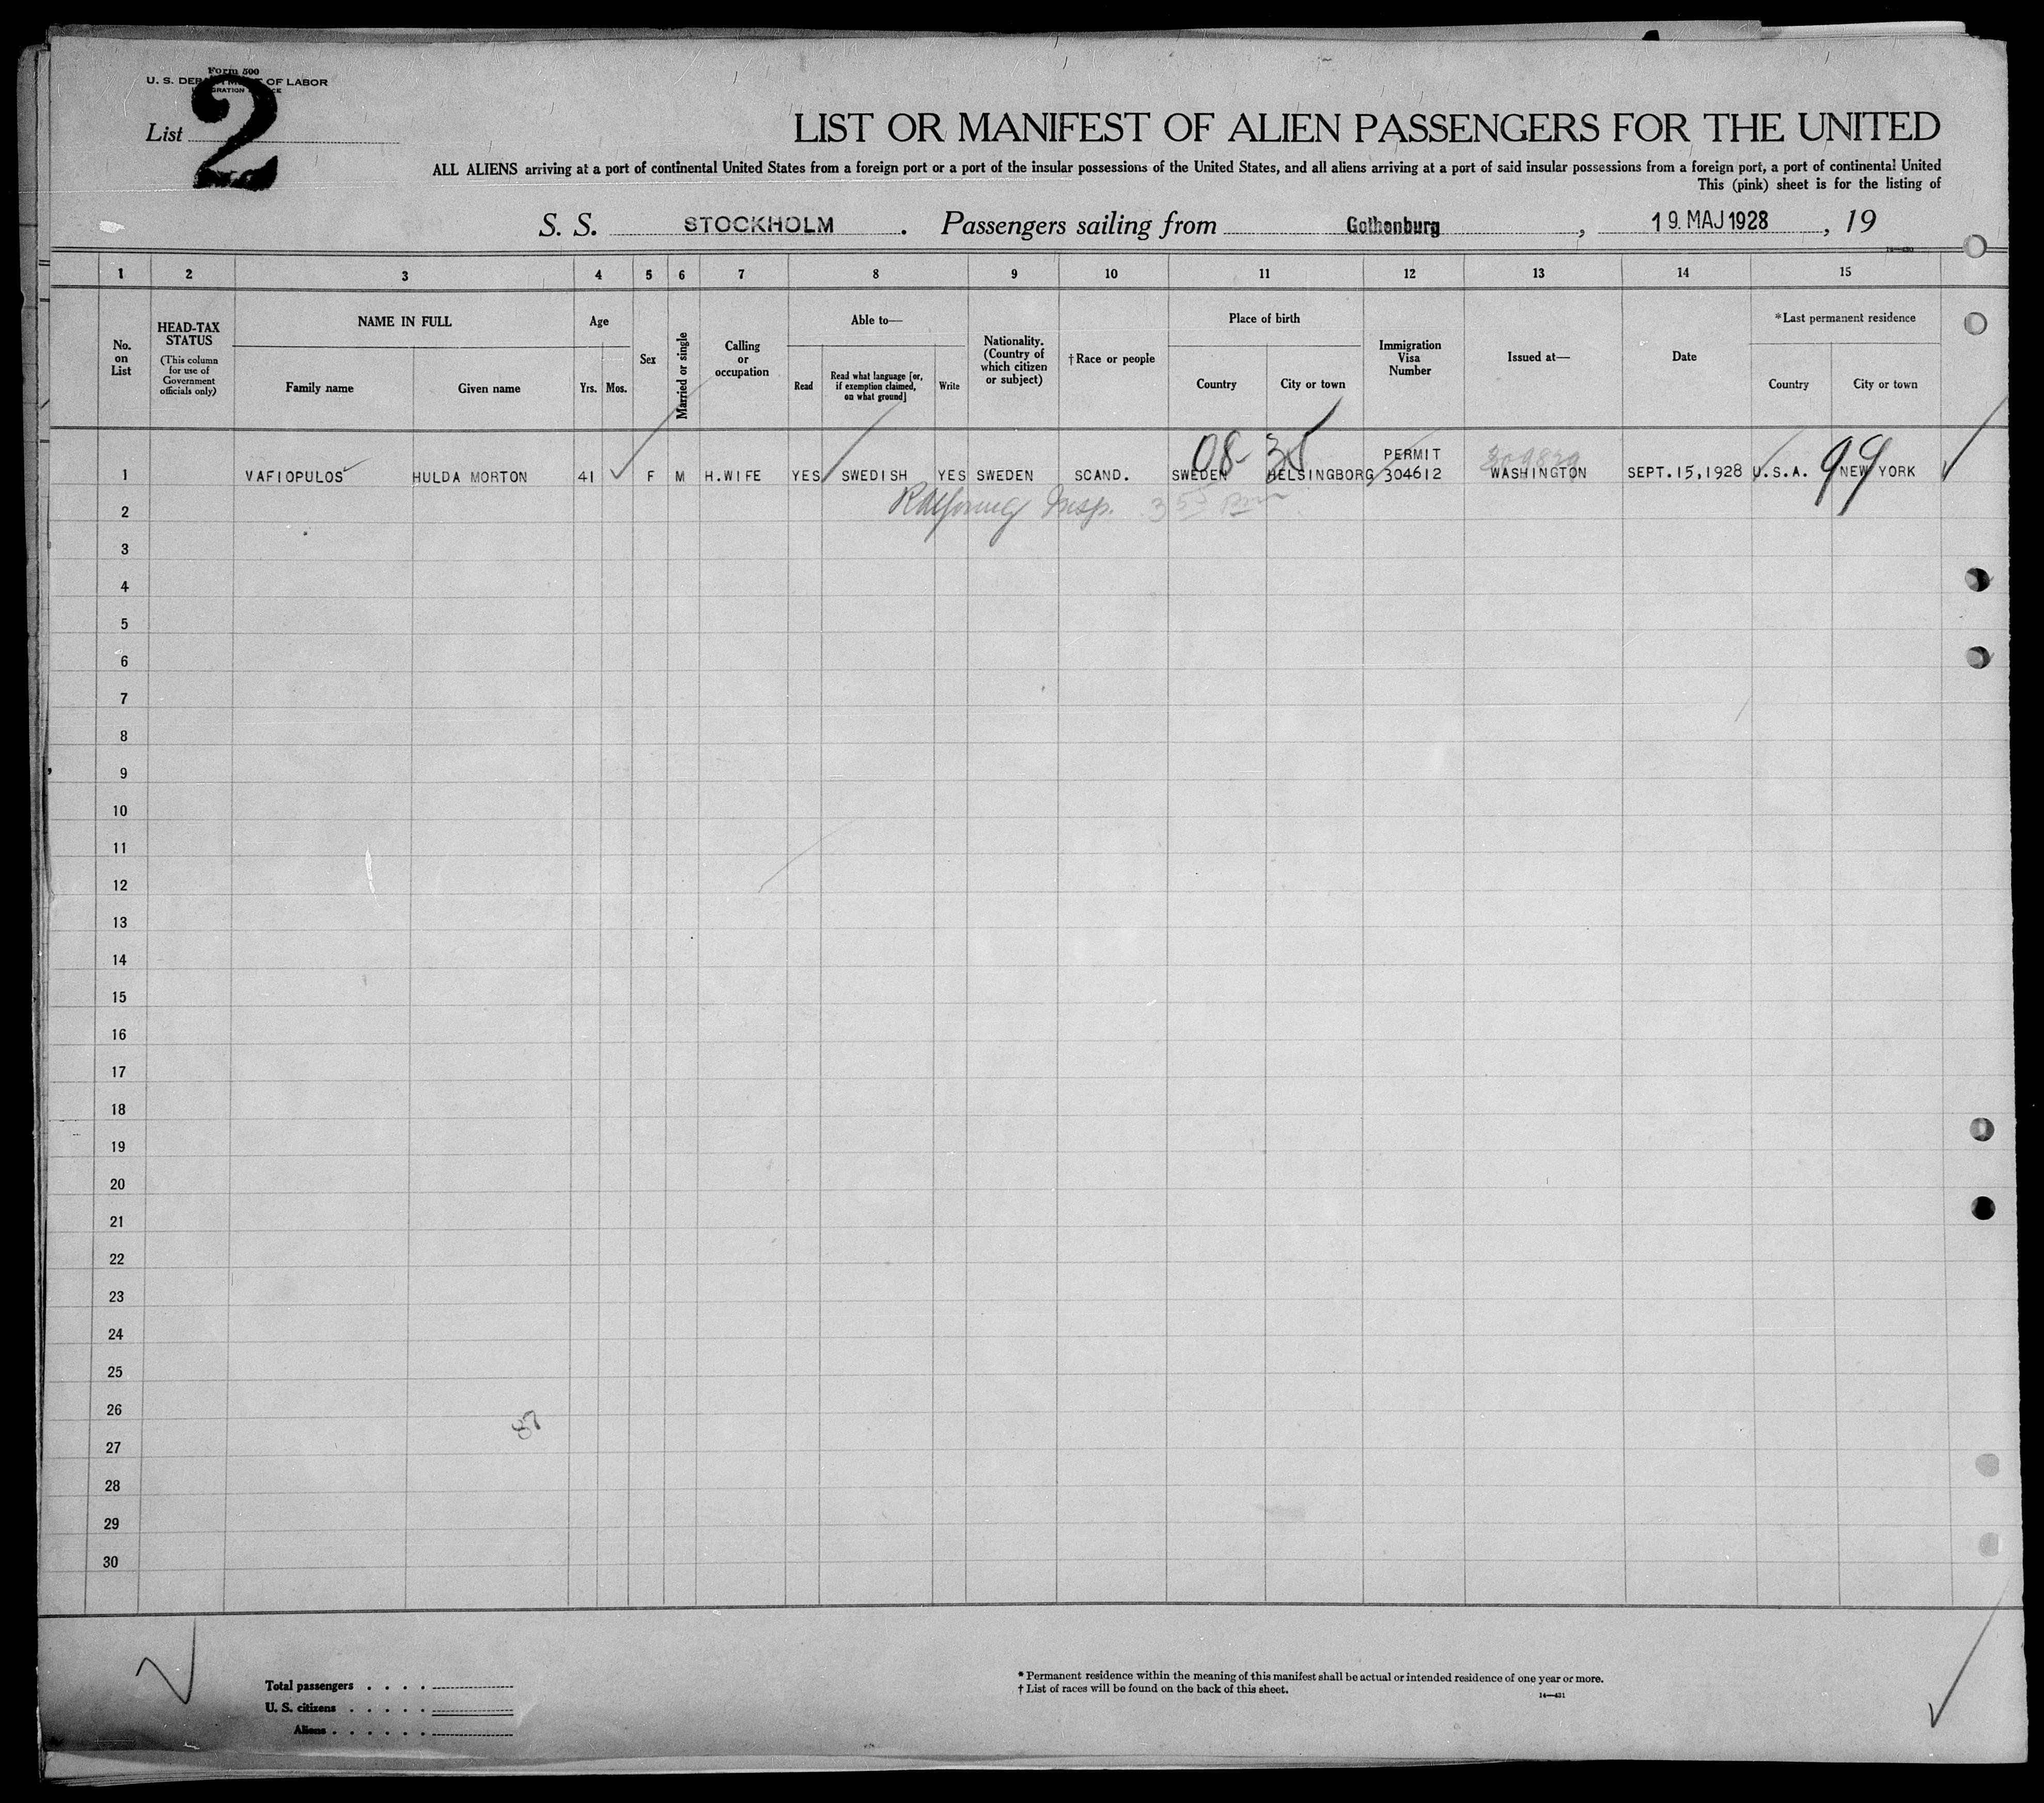 Form 500
U. S. DEPARTMENT OF LABOR
IMMIGRATION SERVICE
List 2
LIST OR MANIFEST OF ALIEN PASSENGERS FOR THE UNITED
ALL ALIENS arriving at a port of continental United States from a foreign port or a port of the insular possessions of the United States, and all aliens arriving at a port of said insular possessions from a foreign port, a port of continental United
This (pink) sheet is for the listing of
S. S. STOCKHOLM. Passengers sailing from Gothenburg, 19. MAJ 1928, 19
1 2 3 4 5 6 7 8 9 10 11 12 13 14 15
No. on List
HEAD-TAX STATUS
(This column for use of Government officials only)
NAME IN FULL
Family name
Given name
Age
Yrs. Mos.
Sex
Married or single
Calling or occupation
Able to—
Read
Read what language [or, if exemption claimed, on what ground]
Write
Nationality. (Country of which citizen or subject)
†Race or people
Place of birth
Country
City or town
Immigration Visa Number
Issued at—
Date
*Last permanent residence
Country
City or town
08- 35 PERMIT 99
1 VAFIOPULOS HULDA MORTON 41 F M H.WIFE YES SWEDISH YES SWEDEN SCAND. SWEDEN HELSINGBORG 304612 WASHINGTON SEPT.15,1928 U.S.A. NEW YORK
2 Insp.
3
4
5
6
7
8
9
10
11
12
13
14
15
16
17
18
19
20
21
22
23
24
25
26
87
27
28
29
30
Total passengers . . . .
U. S. citizens . . . . .
Aliens . . . . . .
* Permanent residence within the meaning of this manifest shall be actual or intended residence of one year or more.
† List of races will be found on the back of this sheet.
14—431